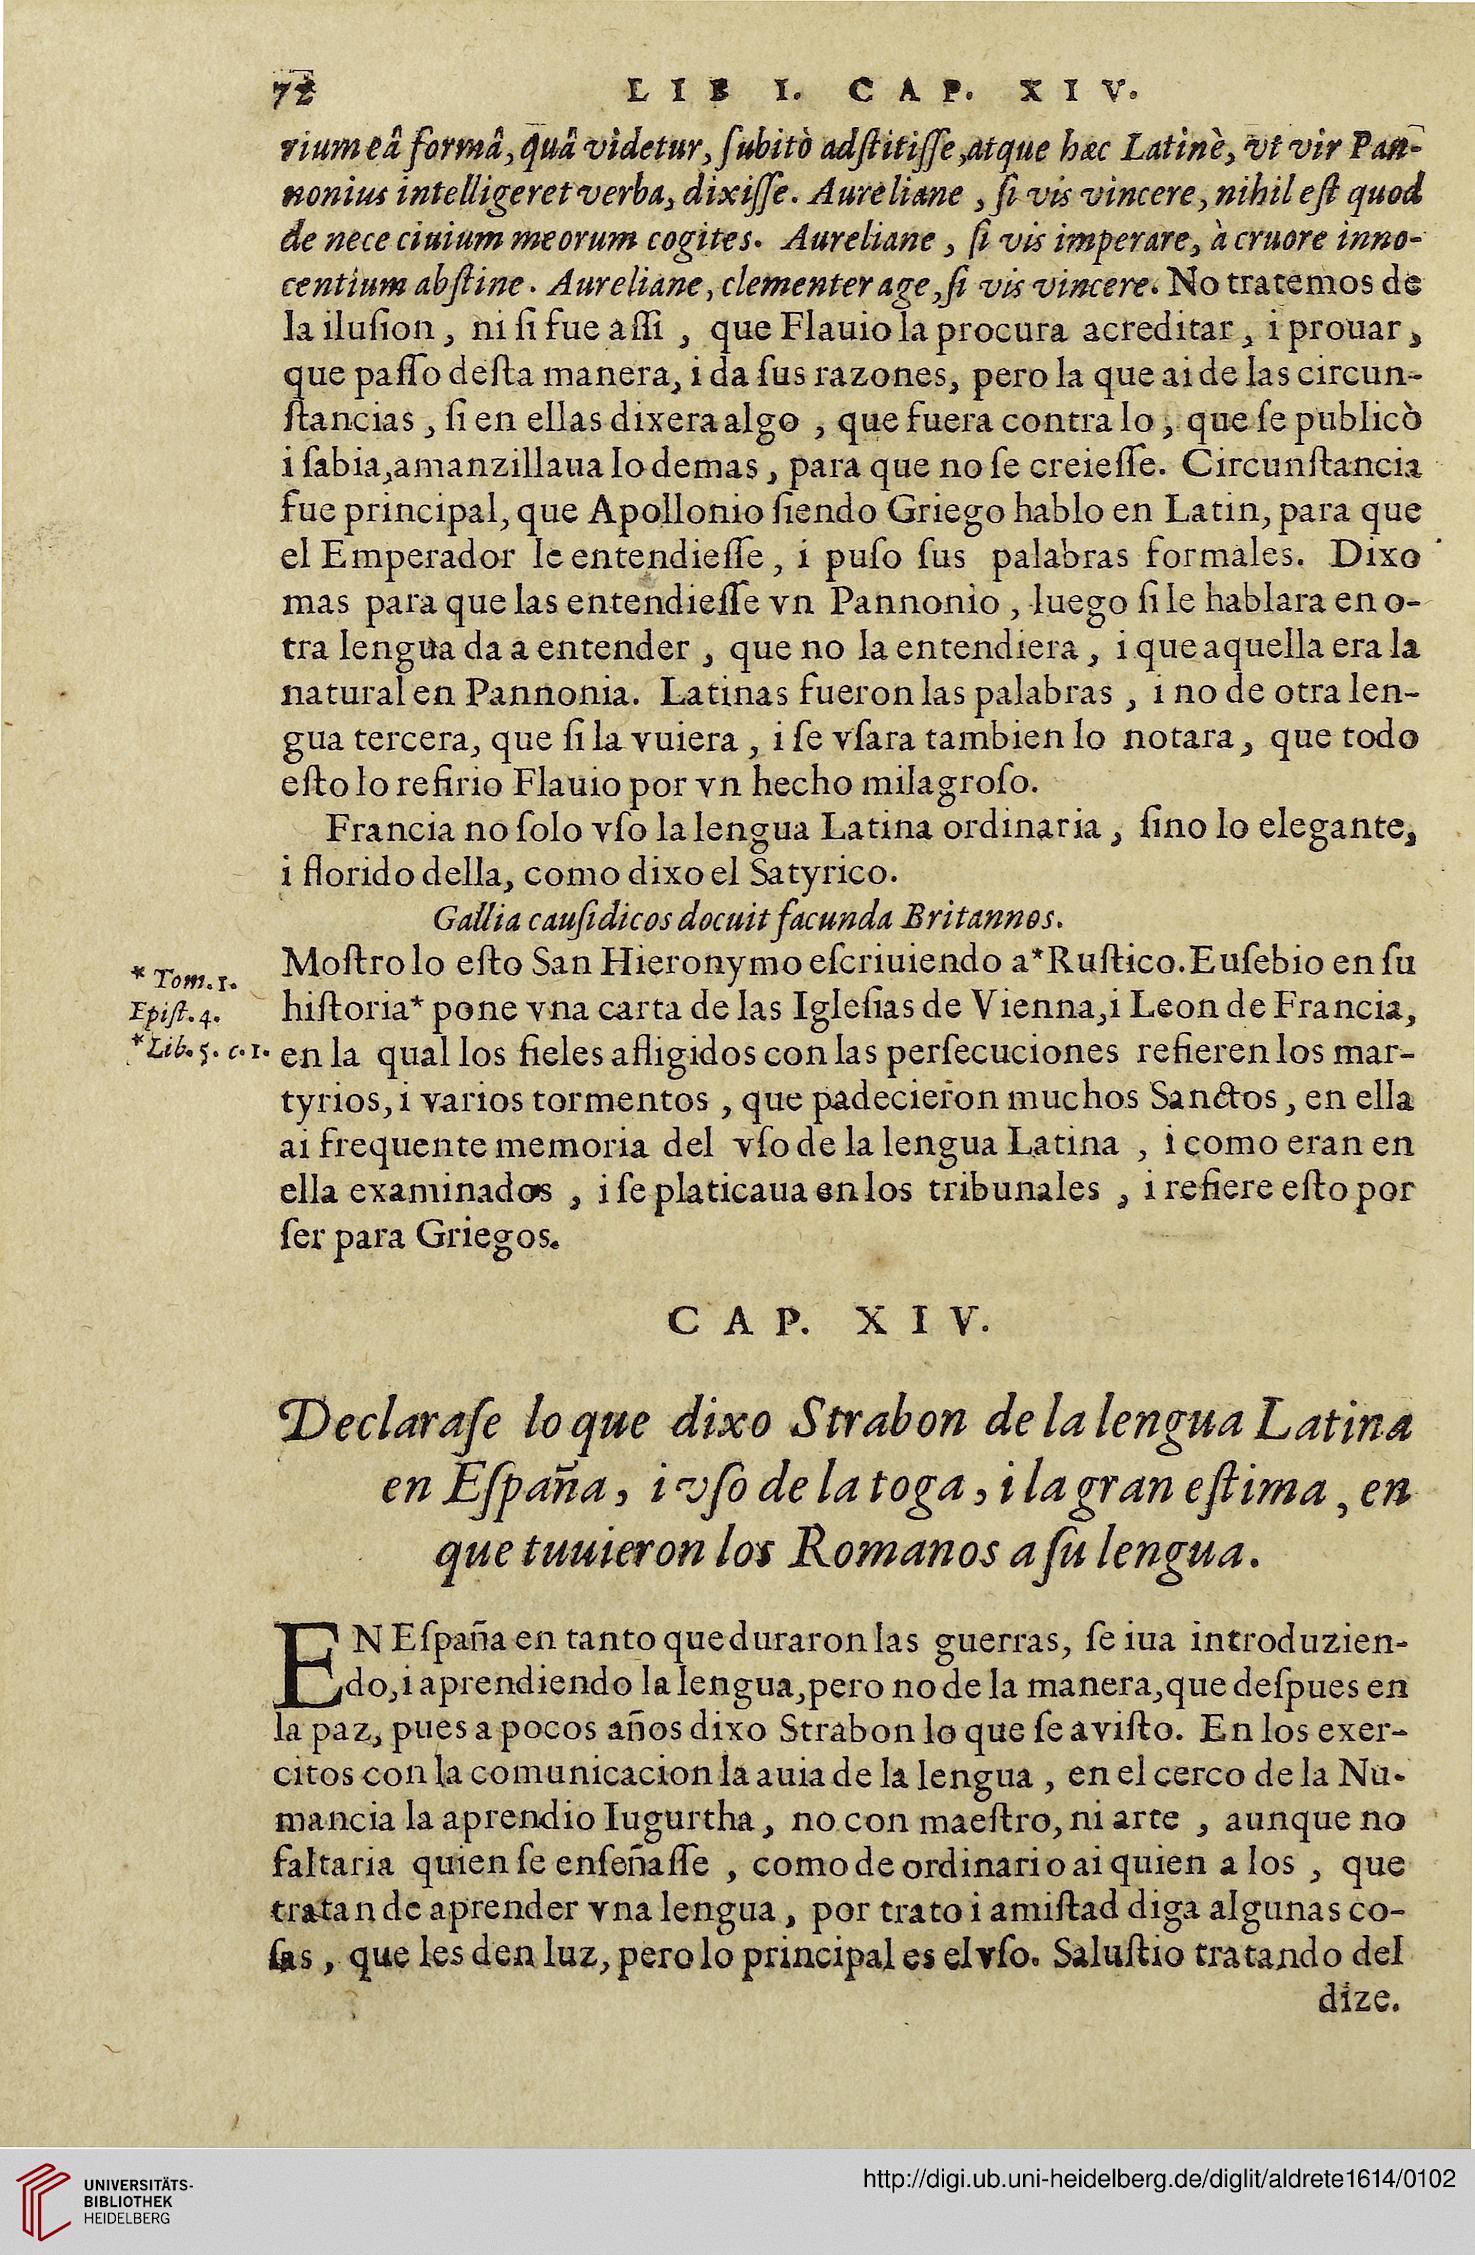 72 LIB I. CAP. XIV.
rium eâ formâ, quâ videtur, ſubitò adſtitiſſe, atque hæc Latinè, vt vir Pan-
nonius intelligeret verba, dixiſſe. Aureliane, ſi vis vincere, nihil eſt quod
de nece ciuium meorum cogites. Aureliane, ſi vis imperare, à cruore inno-
centium abſtine. Aureliane, clementer age, ſi vis vincere. No tratemos de
la iluſion, ni ſi fue aſſi, que Flauio la procura acreditar, i prouar,
que paſſo deſta manera, i da ſus razones, pero la que ai de las circun-
ſtancias, ſi en ellas dixera algo, que fuera contra lo, que ſe publicò
i ſabia, amanzillaua lo demas, para que no ſe creieſſe. Circunſtancia
fue principal, que Apollonio ſiendo Griego hablo en Latin, para que
el Emperador le entendieſſe, i puſo ſus palabras formales. Dixo
mas para que las entendieſſe vn Pannonio, luego ſi le hablara en o-
tra lengua da a entender, que no la entendiera, i que aquella era la
natural en Pannonia. Latinas fueron las palabras, i no de otra len-
gua tercera, que ſi la vuiera, i ſe vſara tambien lo notara, que todo
eſto lo refirio Flauio por vn hecho milagroſo.
Francia no ſolo vſo la lengua Latina ordinaria, ſino lo elegante,
i florido della, como dixo el Satyrico.
Gallia cauſidicos docuit facunda Britannos.
Moſtro lo eſto San Hieronymo eſcriuiendo a*Ruſtico. Euſebio en ſu
* Tom. 1.
hiſtoria* pone vna carta de las Igleſias de Vienna, i Leon de Francia,
Epiſt. 4.
*Lib. 5. c. 1.
en la qual los fieles afligidos con las perſecuciones refieren los mar-
tyrios, i varios tormentos, que padecieron muchos Sanctos, en ella
ai frequente memoria del vſo de la lengua Latina, i como eran en
ella examinados, i ſe platicaua en los tribunales, i refiere eſto por
ſer para Griegos.
CAP. XIV.
Declaraſe lo que dixo Strabon de la lengua Latina
en Eſpaña, i vſo de la toga, i la gran eſtima, en
que tuuieron los Romanos a ſu lengua.
EN Eſpaña en tanto que duraron las guerras, ſe iua introduzien-
do, i aprendiendo la lengua, pero no de la manera, que deſpues en
la paz, pues a pocos años dixo Strabon lo que ſe a viſto. En los exer-
citos con la comunicacion la auia de la lengua, en el cerco de la Nu-
mancia la aprendio Iugurtha, no con maeſtro, ni arte, aunque no
faltaria quien ſe enſeñaſſe, como de ordinario ai quien a los, que
tratan de aprender vna lengua, por trato i amiſtad diga algunas co-
ſas, que les den luz, pero lo principal es el vſo. Saluſtio tratando del
dize.
UNIVERSITÄTS-
BIBLIOTHEK
HEIDELBERG
http://digi.ub.uni-heidelberg.de/diglit/aldrete1614/0102